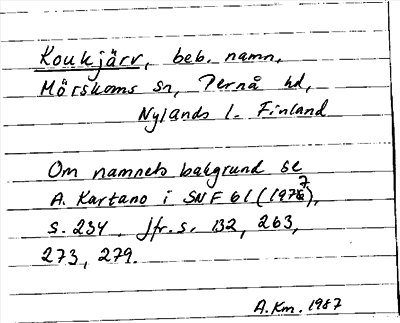 Koukjärv, beb. namn,
Mörskoms sn, Pernå hd,
Nylands l. Finland
Om namnets bakgrund se
A. Kartano i SNF 61 (1977),
s. 234. Jfr. s. 132, 263,
273, 279.
A.Km. 1987